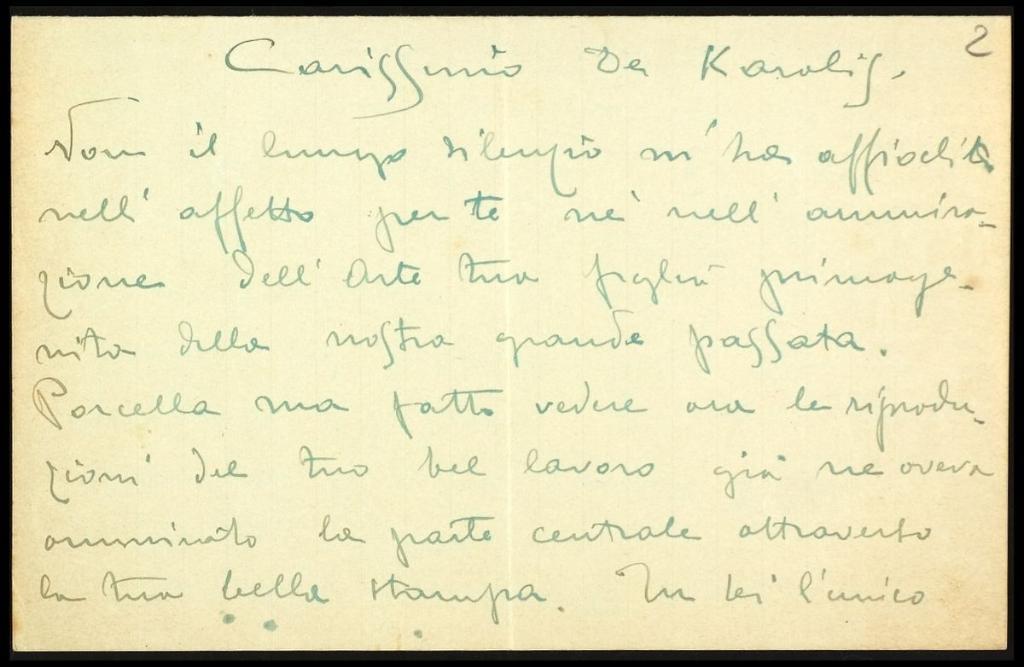 2
Carissimo De Karolis,
Non il lungo silenzio m'ha affiochito
nell'affetto per te nè nell'ammira-
zione dell'Arte tua figlia primoge-
nita della nostra grande passata.
Porcella ma fatto vedere ora le riprodu-
zioni del tuo bel lavoro già ne aveva
ammirato la parte centrale attraverso
la tua bella stampa. Tu sei l'unico